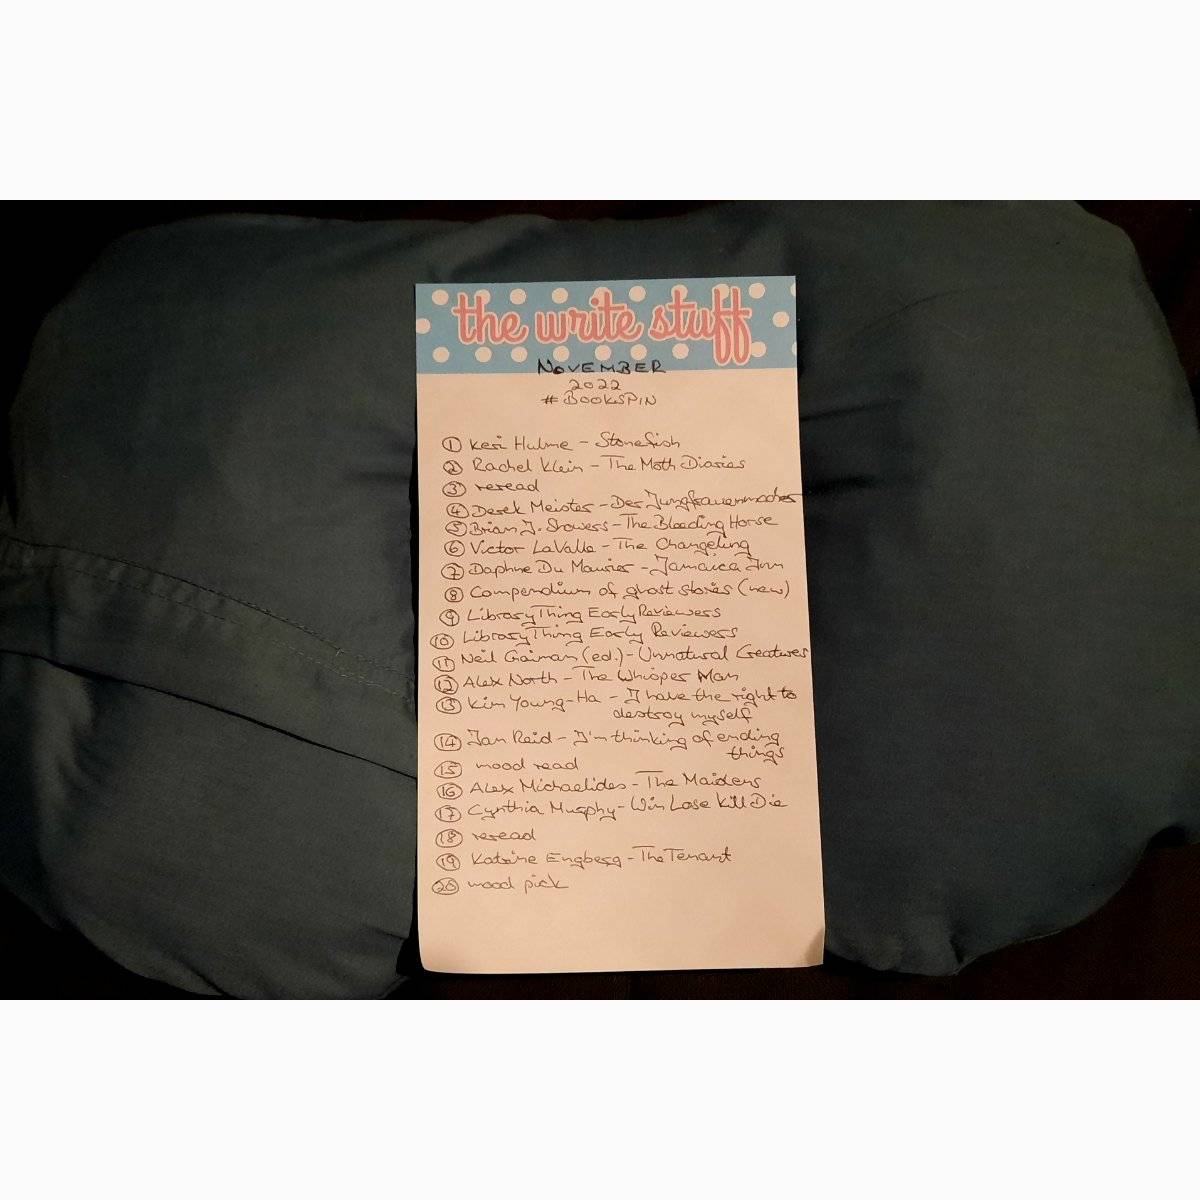 the write stuff
NOVEMBER
2022
#BOOKSPIN
1 Keri Hulme - Stonefish
2 Rachel Klein - The Moth Diaries
3 reread
4 Derek Meister - Der Jungfrauenmacher
5 Brian J. Showers - The Bleeding Horse
6 Victor LaValle - The Changeling
7 Daphne Du Maurier - Jamaica Inn
8 Compendium of ghost stories (new)
9 LibraryThing Early Reviewers
10 LibraryThing Early Reviewers
11 Neil Gaiman (ed.) - Unnatural Creatures
12 Alex North - The Whisper Man
13 Kim Young-Ha - I have the right to
destroy myself
14 Ian Reid - I'm thinking of ending
things
15 mood read
16 Alex Michaelides - The Maidens
17 Cynthia Murphy - Win Lose Kill Die
18 reread
19 Katrine Engberg - The Tenant
20 mood pick